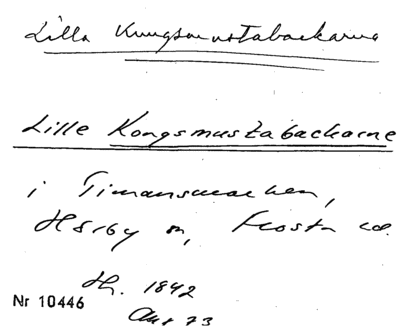 Lilla Kungsmustabackarna
Lille Kongsmustabackarne
i Timansmarken,
Hörby sn, Frosta hd.
Hr. 1842
Akt 73
Nr 10446